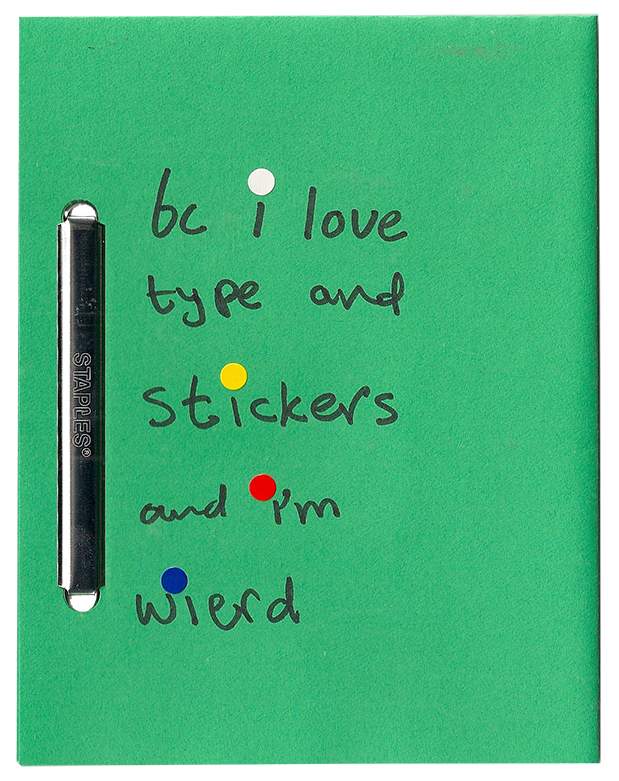 STAPLES®
bc i love
type and
stickers
and i'm
wierd